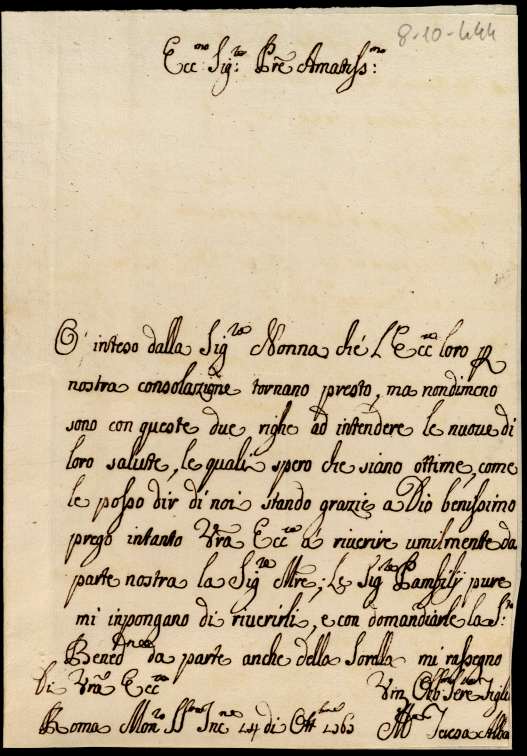 8-10-444
Ecc.mo Sig.re Prẽ Amatiss.mo
O' inteso dalla Sig.ra Nonna ché L'Ecc.ze loro p
nostra consolazione tornano presto, ma nondimeno
sono con queste due righe ad intendere le nuove di
loro salute, le quali spero che siano ottime, come
le posso dir di noi stando grazie a Dio benissimo
prego intanto Vrã Ecc.za à riverire umilmente da
parte nostra la Sig.ra Mrẽ; Le Sig.re Pamfilj pure
mi inpongano di riverirli, e con domandarle la S.ta
Bened.ne da parte anche della Sorella mi rassegno
Di Vrã Ecc.za
Roma 24 di Ott.bre
Teresa Alba